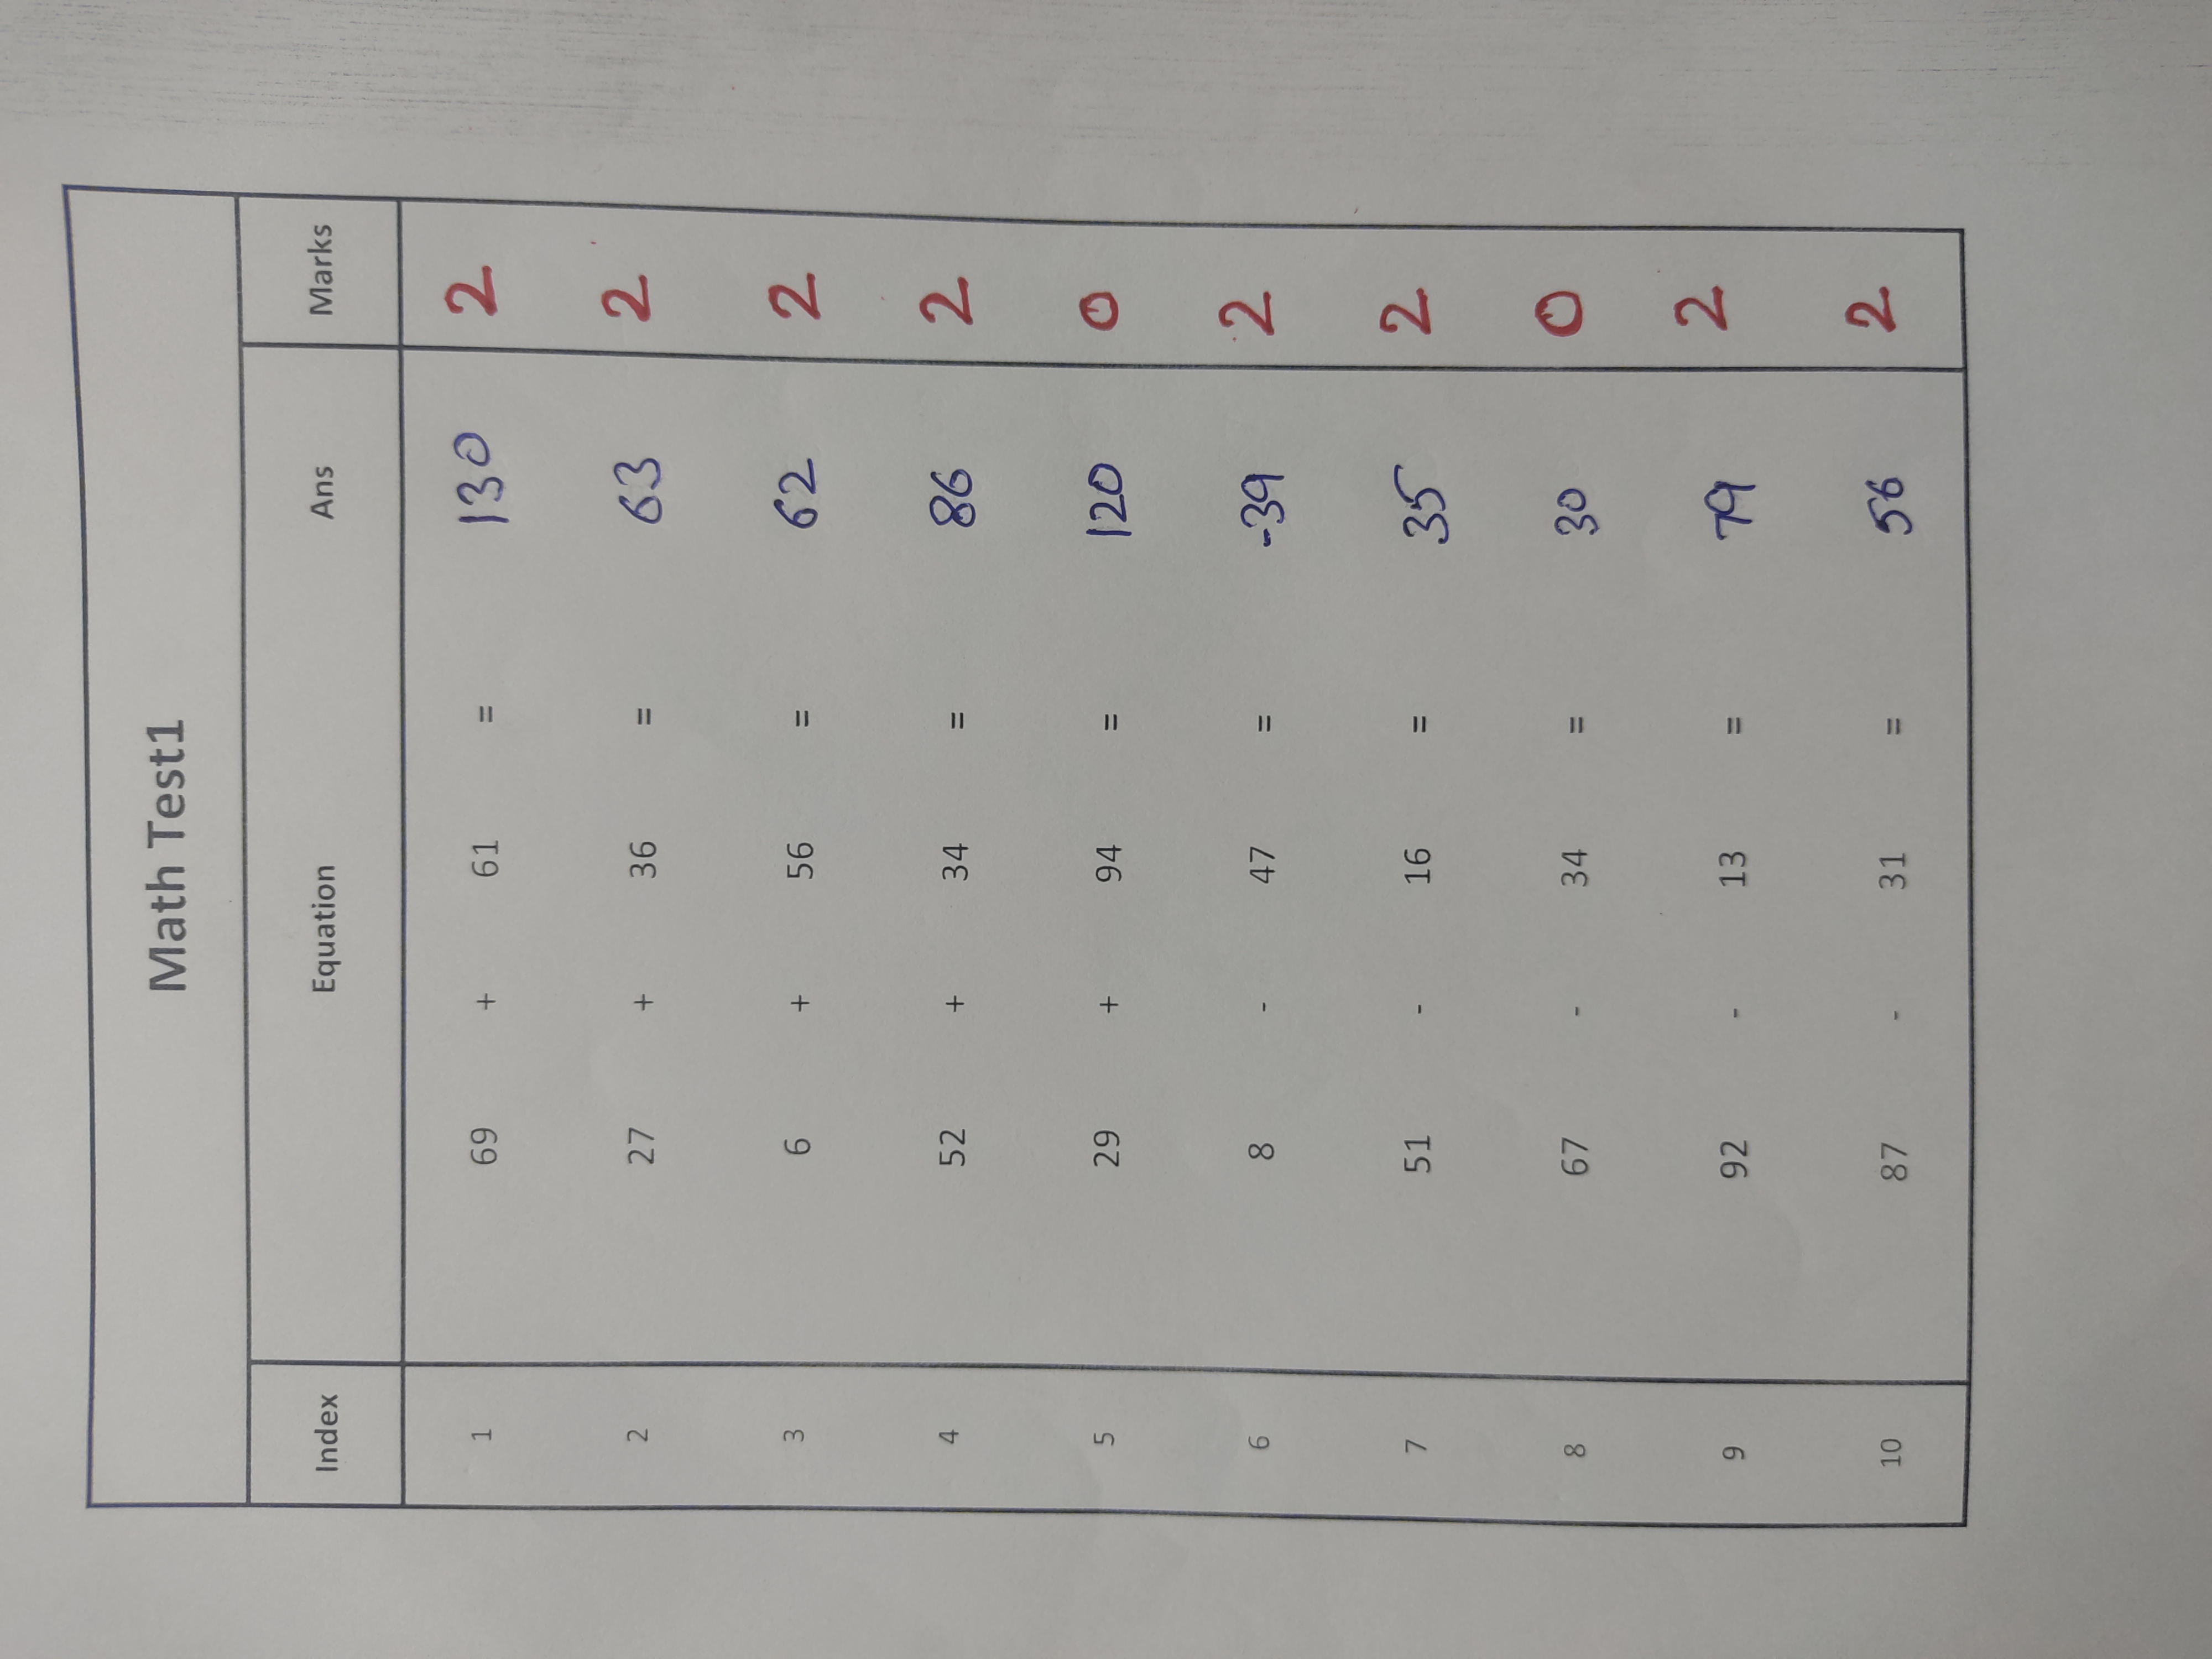 Math Test1
Index Equation Ans Marks
1 69 + 61 = 130 2
2 27 + 36 = 63 2
3 6 + 56 = 62 2
4 52 + 34 = 86 2
5 29 + 94 = 120 0
6 8 - 47 = -39 2
7 51 - 16 = 35 2
8 67 - 34 = 30 0
9 92 - 13 = 79 2
10 87 - 31 = 56 2